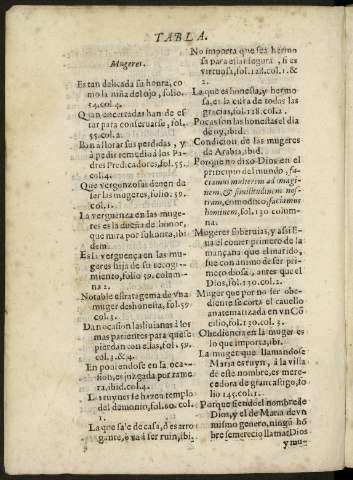 TABLA.
Mugeres.
Es tan delicada su honra, co
mo la niña del ojo, folio.
54.col.4.
Quan encerradas han de es
tar para conseruarse, fol.
55.col.2.
Van a llorar sus perdidas, y
à pedir remedio à los Pa
dres Predicadores, fol.55.
col.4.
Que vergonzosas deuen de
ser las mugeres, folio.59.
col.1.
La verguenza en las muge
res es la dueña de honor,
que mira por su honra, ibi
dem.
Es la verguença en las mu
geres hija de su recogi-
miento, folio 59. colum
na 2.
Notable estratagema de vna
muger deshonesta, fol.59.
col.3.
Dan ocasion las liuianas à los
mas parientes para que se
pierdan con ellas, fol.59.
col.3.&4.
En poniendose en la oca-
sion, es juzgada por rame
ra, ibid.col.4.
Las ruynes se hazen templo
del demonio, fol.60. col.
1.
La que sale de casa, ò es arro
gante, ò và à ser ruin, ibi.
No importa que sea hermo
sa para estar segura, si es
virtuosa, fol.128.col.1.&
2.
La que es honesta, y hermo
sa, es la cifra de todas las
gracias, fol.128.col.2.
Pocas son las honestas el dia
de oy, ibid.
Condicion de las mugeres
de Arabia, ibid.
Porque no dixo Dios en el
principio del mundo, fa-
ciamus mulierem ad imagi
nem, & similitudinem nos-
tram, como dixo, faciamus
hominem, fol.130 colum-
na.
Mugeres soberuias, y assi E-
ua el comer primero de la
mançana que el marido,
fue con animo de ser pri-
mero diosa, antes que el
Dios, fol.130.col.2.
Muger que por no ser obe-
diente se corta el cauello
anatematizada en vn Cõ
cilio, fol.130.col.3.
Obediencia en la muger es
lo que importa, ibi.
La muger que llamandose
Maria es ruyn, à la vista
de este nombre, es mere-
cedora de gran castigo, fo
lio 145.col.1.
Porque siendo el nombre de
Dios, y el de Maria de vn
mismo genero, ningũ hõ
bre se merecio llamar Dios
y mu-